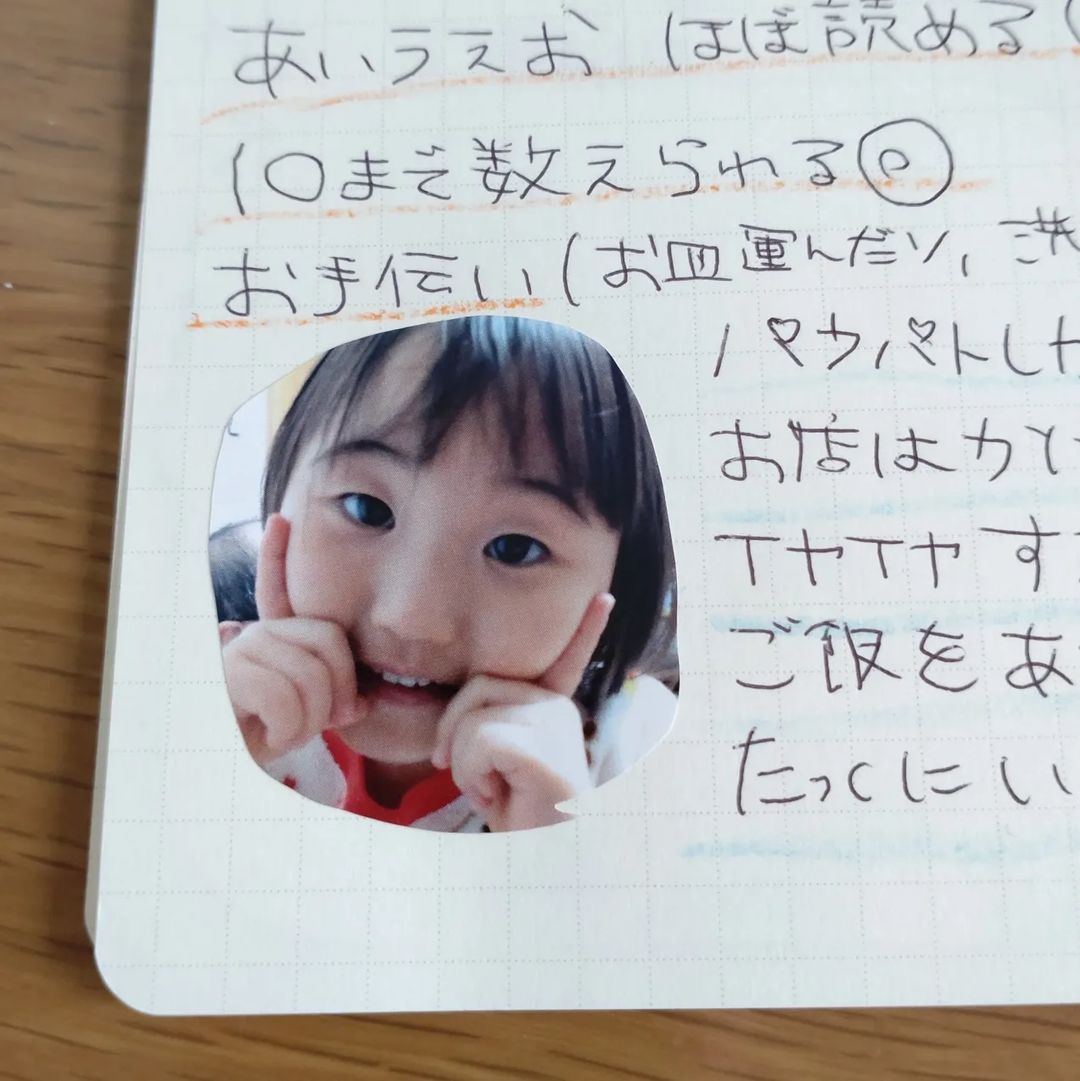 あいうえお ほぼ読める(
10まで数えられる
お手伝い(お皿運んだり,
パウパトし
お店は
イヤイヤ す
ご飯をあ
たっくにい